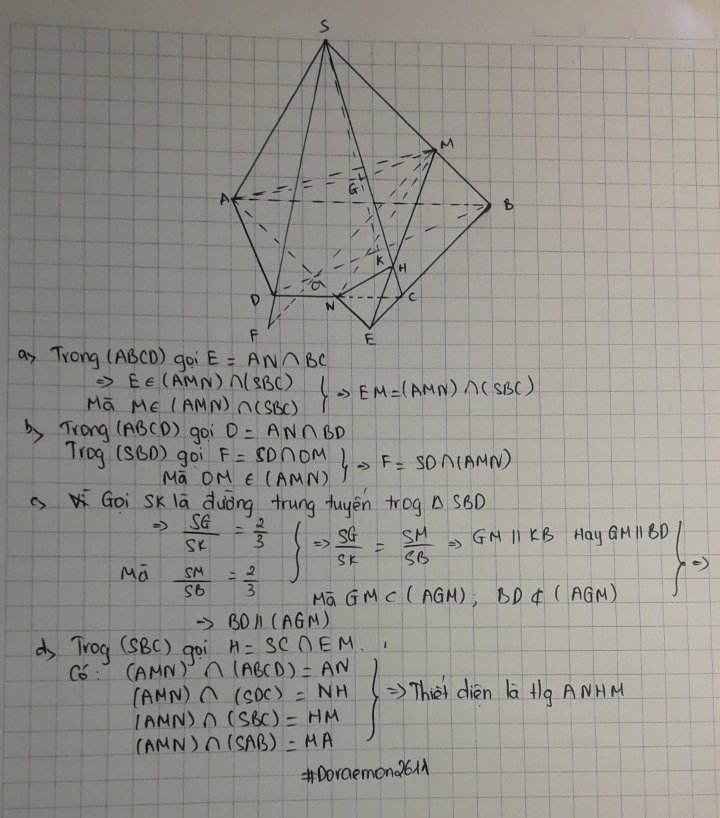 S
M
A
G
B
K
H
O
D
N
C
F
E
a) Trong (ABCD) gọi E = AN ∩ BC
=> E ∈ (AMN) ∩ (SBC)
Mà M ∈ (AMN) ∩ (SBC) } => EM = (AMN) ∩ (SBC)
b) Trong (ABCD) gọi O = AN ∩ BD
Trog (SBD) gọi F = SD ∩ OM
Mà OM ∈ (AMN) } => F = SD ∩ (AMN)
c) Gọi SK là đường trung tuyến trog Δ SBD
=> SG/SK = 2/3
Mà SM/SB = 2/3 } => SG/SK = SM/SB => GM // KB Hay GM // BD
Mà GM ⊂ (AGM), BD ⊄ (AGM) } =>
-> BD // (AGM)
d) Trog (SBC) gọi H = SC ∩ EM.
Có: (AMN) ∩ (ABCD) = AN
(AMN) ∩ (SDC) = NH
(AMN) ∩ (SBC) = HM
(AMN) ∩ (SAB) = MA } => Thiết diện là tg ANHM
#Doraemon2611